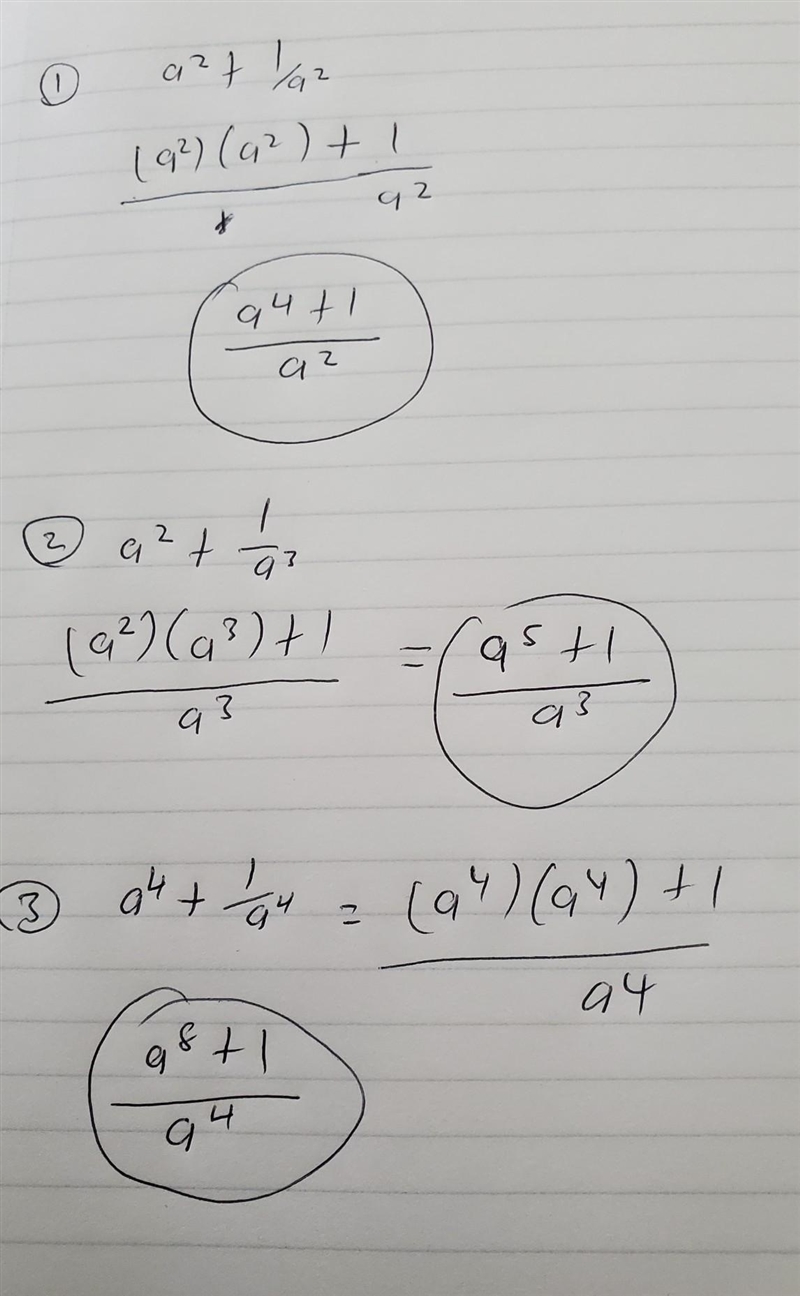 ① a² + 1/a²
(a²)(a²) + 1
a²
a⁴ + 1
a²
② a² + 1/a³
(a²)(a³) + 1 = a⁵ + 1
a³ a³
③ a⁴ + 1/a⁴ = (a⁴)(a⁴) + 1
a⁴
a⁸ + 1
a⁴